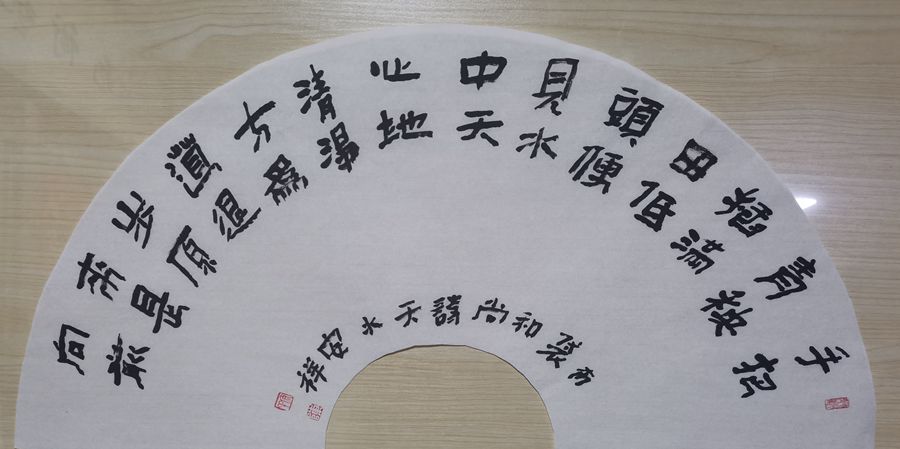 手把
青秧
插滿
田低
頭便
見水
中天
心地
清淨
方為
道退
步原
来是
向前
布袋和尚詩天水安祥